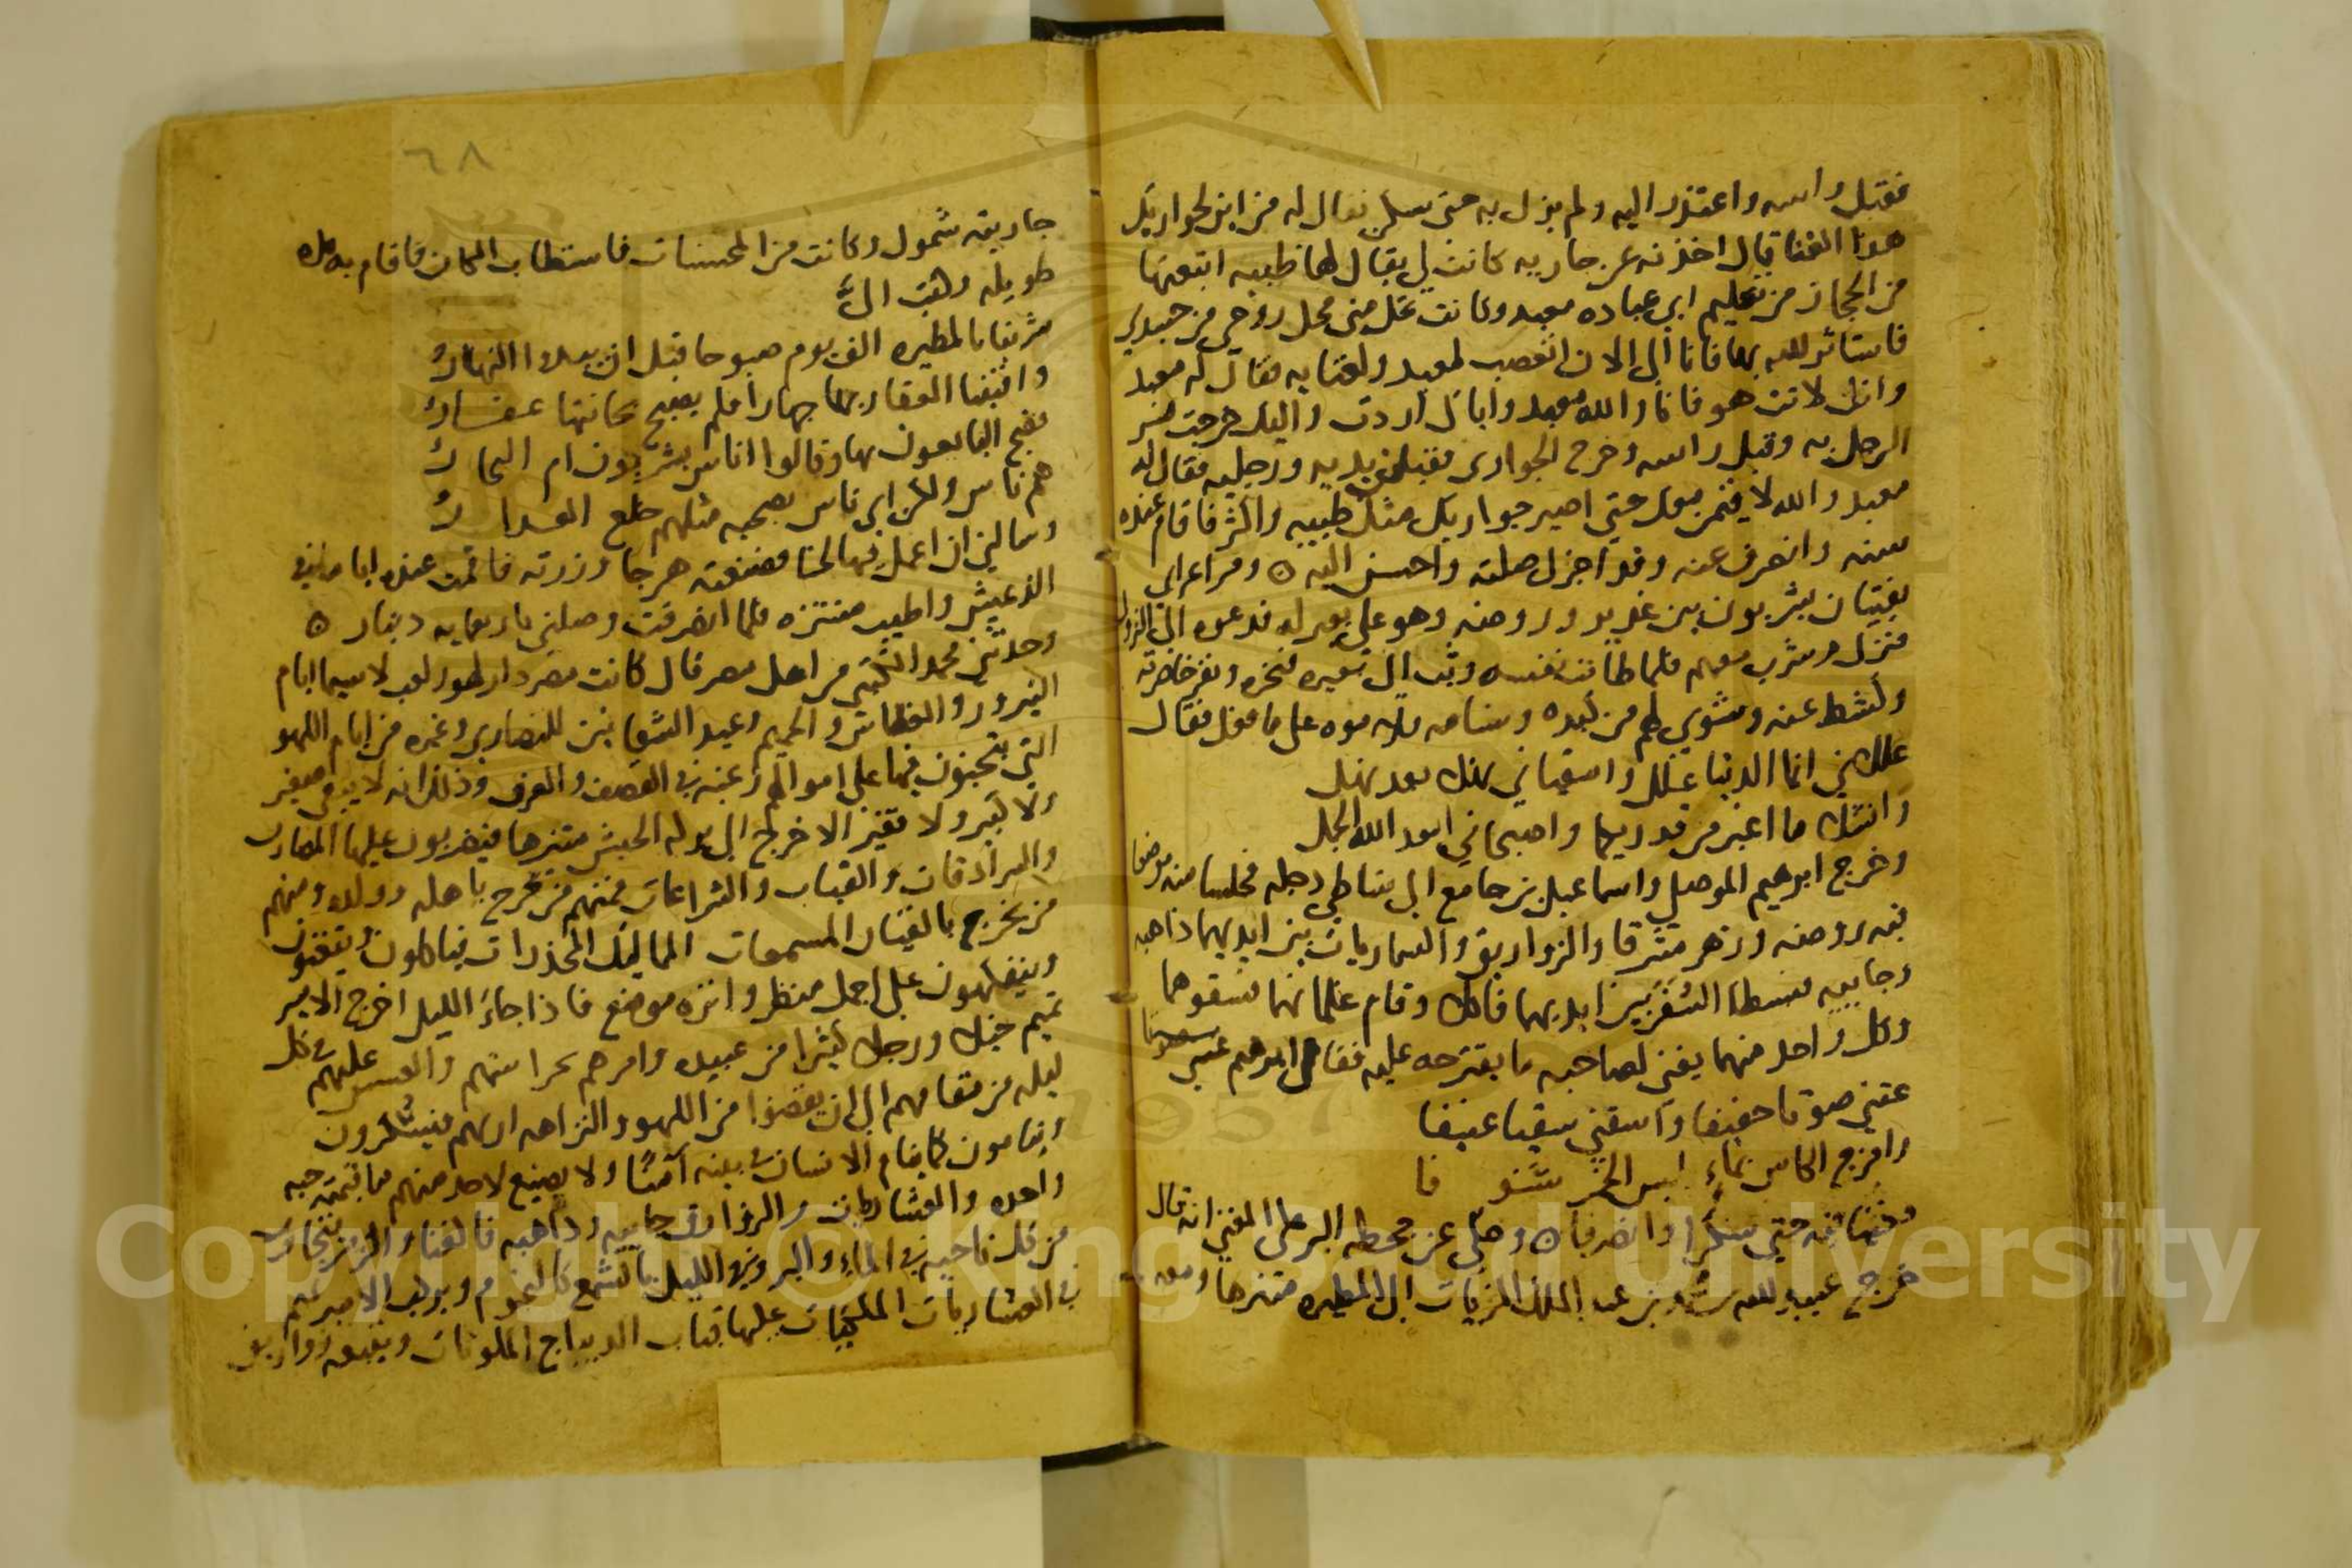 فقبل راسه واعتذر اليه ولم يزل به حتى سكن فقال له من اين لجواريك
هذا الغنا قال اخذنه عن جاريه كانت لي يقال لها ظبيه ابتعتها
من الحجاز من تعليم ابي عباده معبد وكانت تحل مني محل روحي من جسدي
فاستاثر الله بها فانا الى الان اتعصب لمعبد ولغنايه فقال له معبد
وانك لانت هو فانا والله معبد واياك اردت واليك خرجت فسر
الرجل به وقبل راسه وخرج الجواري فقبلن يديه ورجليه فقال له
معبد والله لا قيمن معك حتي اصير جواريك مثل ظبيه واكثر فاقام عنده
سنه وانصرف عنه وقد اجزل صلته واحسن اليه ه ومر اعرابي
بفتيان يشربون بين غدير وروضه وهو على بعير له فدعوه الى النزول
فنزل وشرب معهم فلما طابت نفسه وثب الى بعيره فنحره وبقر خاصرته
وكشط عنه وشوي لهم من كبده وسنامه على ما فعل فقال
عللاني انما الدنيا علل واسقياني نهلا بعد نهل
وانشلا ما اغبر من قدريكما واصبحاني ابعد الله الجمل
وخرج ابرهيم الموصلي واسماعيل بن جامع الى شاطي دجله فجلسا منه موضعا
فيه روضه وزهر مشرقا والزواريق والسماريات بين ايديهما ذاهبه
وجاييه فبسطا السفر بين ايديهما فاكلا وقام غلمانهما فسقوهما
وكل واحد منهما يغني لصاحبه ما يقترحه عليه فقال ابرهيم
غنني صوتا خفيفا واسقني سقيا عنيفا
وامزج الكاس بماء ليس الخمر
حتي سكرا وانصرفا ه وحكي عن جحظه البرمكي المغني انه قال
خرج عبيد الله بن عبد الملك الزيات الى المطيره متنزها ومعه
٦٨
جاريته شمول وكانت من المحسنات فاستطاب المكان فاقام به مده
طويله وكتب الي
شربنا بالمطيره الف يوم صبوحا قبل ان يبدا النهار
وافنينا العقار بها جهارا فلم يصبح بحانتها عقار
فضج البايعون بها وقالوا اناس يشربون ام البحار
هم ناس ولكن اي ناس بصحبه مثلهم خلع العذار
وسالني ان اعمل فيها لحنا فصنعته هزجا وزرته فاقمت عنده اياما في
الذ عيش واطيب متنزه فلما انصرفت وصلني باربعمايه دينار ه
وحدثني محمد الكتبي من اهل مصر قال كانت مصر دار لهو ولعب لاسيما ايام
النيروز والغطاس والحميم وعيد الشعانين للنصاري وغيره من ايام اللهو
التي يتحينون فيها على اموالهم رغبه في القصف والعزف وذلك انه لا يبقى صغير
ولا كبير ولا فقير الا خرج الى بركه الحبش متنزها فيضربون عليها المضارب
والسرادقات والقباب والشراعات فمنهم من يخرج باهله وولده ومنهم
من يخرج بالقينات المسمعات المماليك المخدرات فياكلون
ويتفكهون على اجمل منظر وانزه موضع فاذا جاء الليل اخرج الامير
تميم خيلا ورجلا كثيرا من عبيده وامرهم بحراستهم والعسس عليهم في كل
ليله من مقامهم الى ان يقضوا من اللهو والنزاهه اربهم فيسكرون
وينامون كما ينام الانسان في بيته آمنا ولا يضيع لاحد منهم ما قيمته حبه
واحده والعشاريات والزوارق جاييه وذاهبه فالغناء والزمر
من كل ناحيه في الماء والبر وفي الليل بالشمع كالنجوم ويركب الامير تميم
في العشاريات عليها قباب الديباج الملونات وتتبعه زواريق